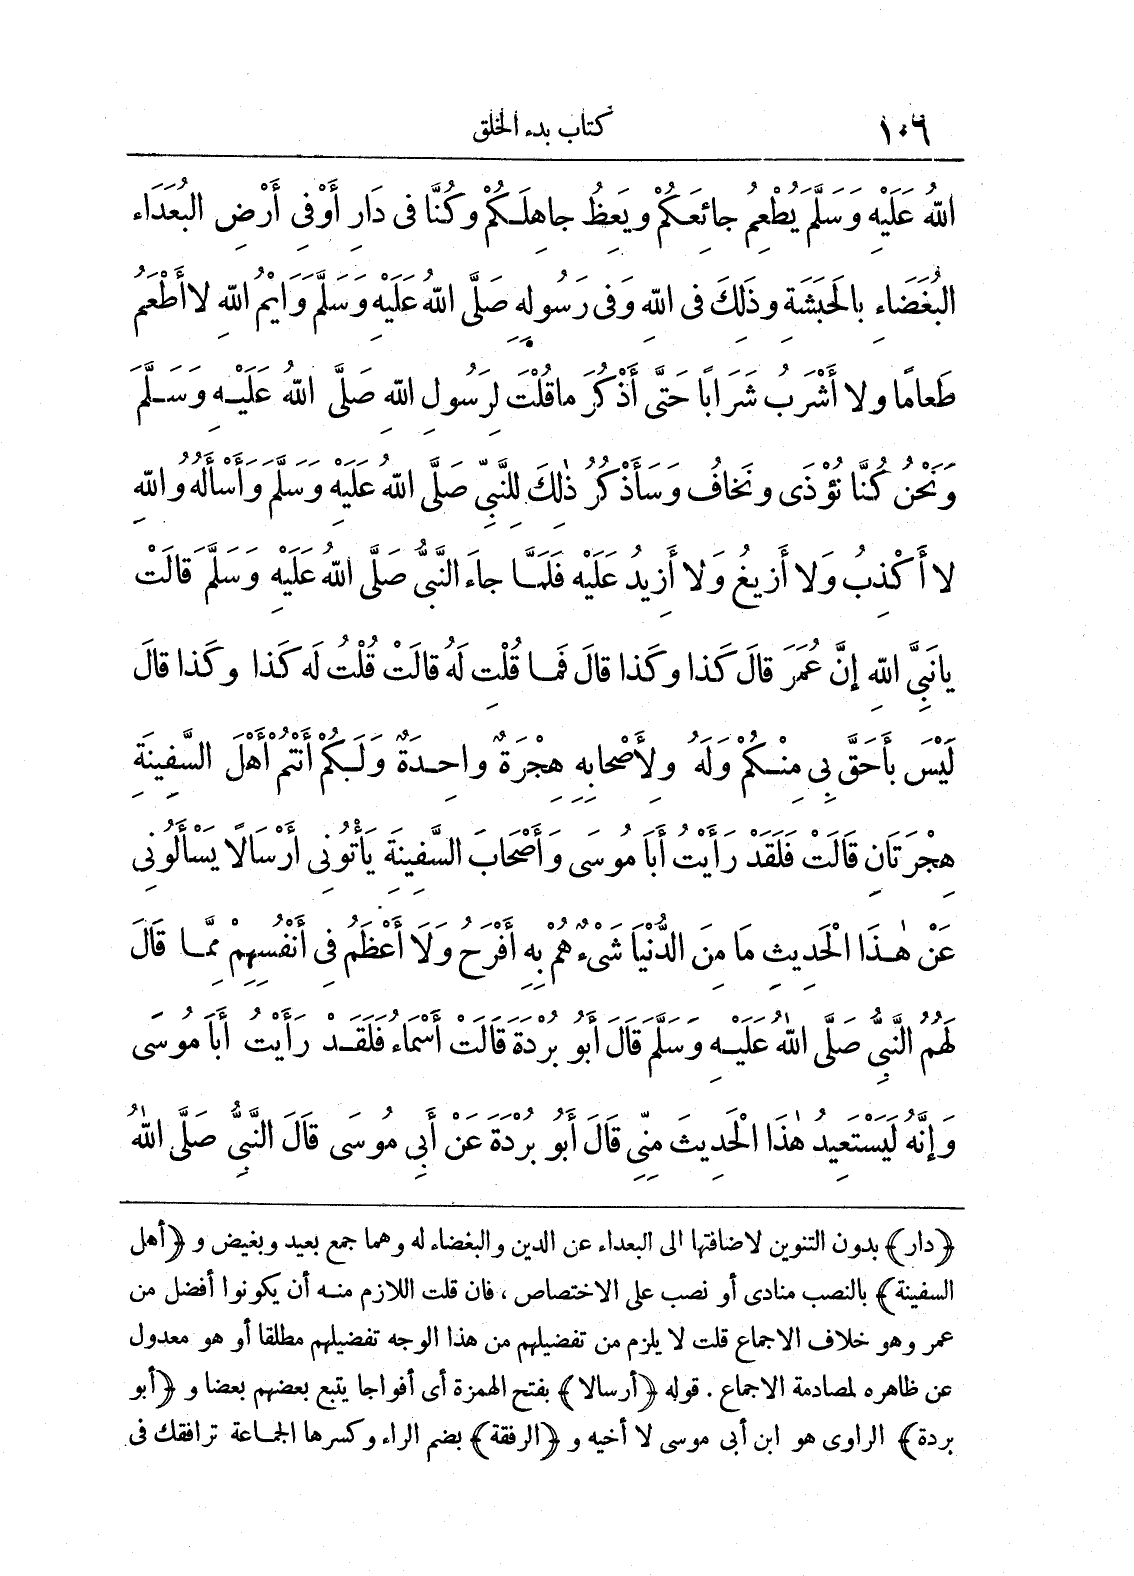 ١٠٦ كتاب بدء الخلق
اللهُ عَلَيْهِ وَسَلَّمَ يُطْعِمُ جائِعَكُمْ ويَعِظُ جاهِلَكُمْ وكُنَّا فى دَارِ أَوْفِى أَرْضِ البُعَدَاءِ
البُغَضَاءِ بالحَبَشَةِ وذَلِكَ فى اللهِ وَفى رَسُولِهِ صَلَّى اللهُ عَلَيْهِ وَسَلَّمَ وَايْمُ اللهِ لا أَطْعَمُ
طَعامًا ولا أَشْرَبُ شَرَابًا حَتَّى أَذْكُرَ ماقُلْتَ لِرَسُولِ اللهِ صَلَّى اللهُ عَلَيْهِ وَسَلَّمَ
وَنَحْنُ كُنَّا نُؤْذَى ونَخافُ وَسَأَذْكُرُ ذٰلِكَ لِلنَّبِيِّ صَلَّى اللهُ عَلَيْهِ وَسَلَّمَ وَأَسْأَلُهُ واللهِ
لا أَكْذِبُ وَلا أَزيغُ وَلا أَزِيدُ عَلَيْهِ فَلَمَّا جاءَ النَّبِىُّ صَلَّى اللهُ عَلَيْهِ وَسَلَّمَ قالَتْ
يانَبِىَّ اللهِ إنَّ عُمَرَ قالَ كَذا وكَذا قالَ فَما قُلْتِ لَهُ قالَتْ قُلْتُ لَه كَذا وكَذا قالَ
لَيْسَ بأَحَقَّ بِى مِنْكُمْ وَلَهُ ولِأَصْحابِهِ هِجْرَةٌ واحِدَةٌ وَلَكُمْ أَنْتُمْ أَهْلَ السَّفِينَةِ
هِجْرَتَانِ قَالَتْ فَلَقَدْ رَأَيْتُ أَبَا مُوسَى وَأَصْحَابَ السَّفِينَةِ يَأْتُونِى أَرْسَالًا يَسْأَلُونِى
عَنْ هٰذَا الْحَدِيثِ مَا مِنَ الدُّنْيَا شَىْءٌ هُمْ بِهِ أَفْرَحُ وَلَا أَعْظَمُ فِى أَنْفُسِهِمْ مِمَّا قَالَ
لَهُمُ النَّبِىُّ صَلَّى اللهُ عَلَيْهِ وَسَلَّمَ قَالَ أَبُو بُرْدَةَ قَالَتْ أَسْمَاءُ فَلَقَدْ رَأَيْتُ أَبَا مُوسَى
وَإِنَّهُ لَيَسْتَعِيدُ هٰذَا الْحَدِيثَ مِنِّى قَالَ أَبُو بُرْدَةَ عَنْ أَبِى مُوسَى قَالَ النَّبِىُّ صَلَّى اللهُ
﴿دار﴾ بدون التنوين لاضافتها الى البعداء عن الدين والبغضاء له وهما جمع بعيد وبغيض و ﴿أهل
السفينة﴾ بالنصب منادى أو نصب على الاختصاص ، فان قلت اللازم منه أن يكونوا أفضل من
عمر وهو خلاف الاجماع قلت لا يلزم من تفضيلهم من هذا الوجه تفضيلهم مطلقا أو هو معدول
عن ظاهره لمصادمة الاجماع . قوله ﴿أرسالا﴾ بفتح الهمزة أى أفواجا يتبع بعضهم بعضا و ﴿أبو
بردة﴾ الراوى هو ابن أبى موسى لا أخيه و ﴿الرفقة﴾ بضم الراء وكسرها الجماعة ترافقك فى